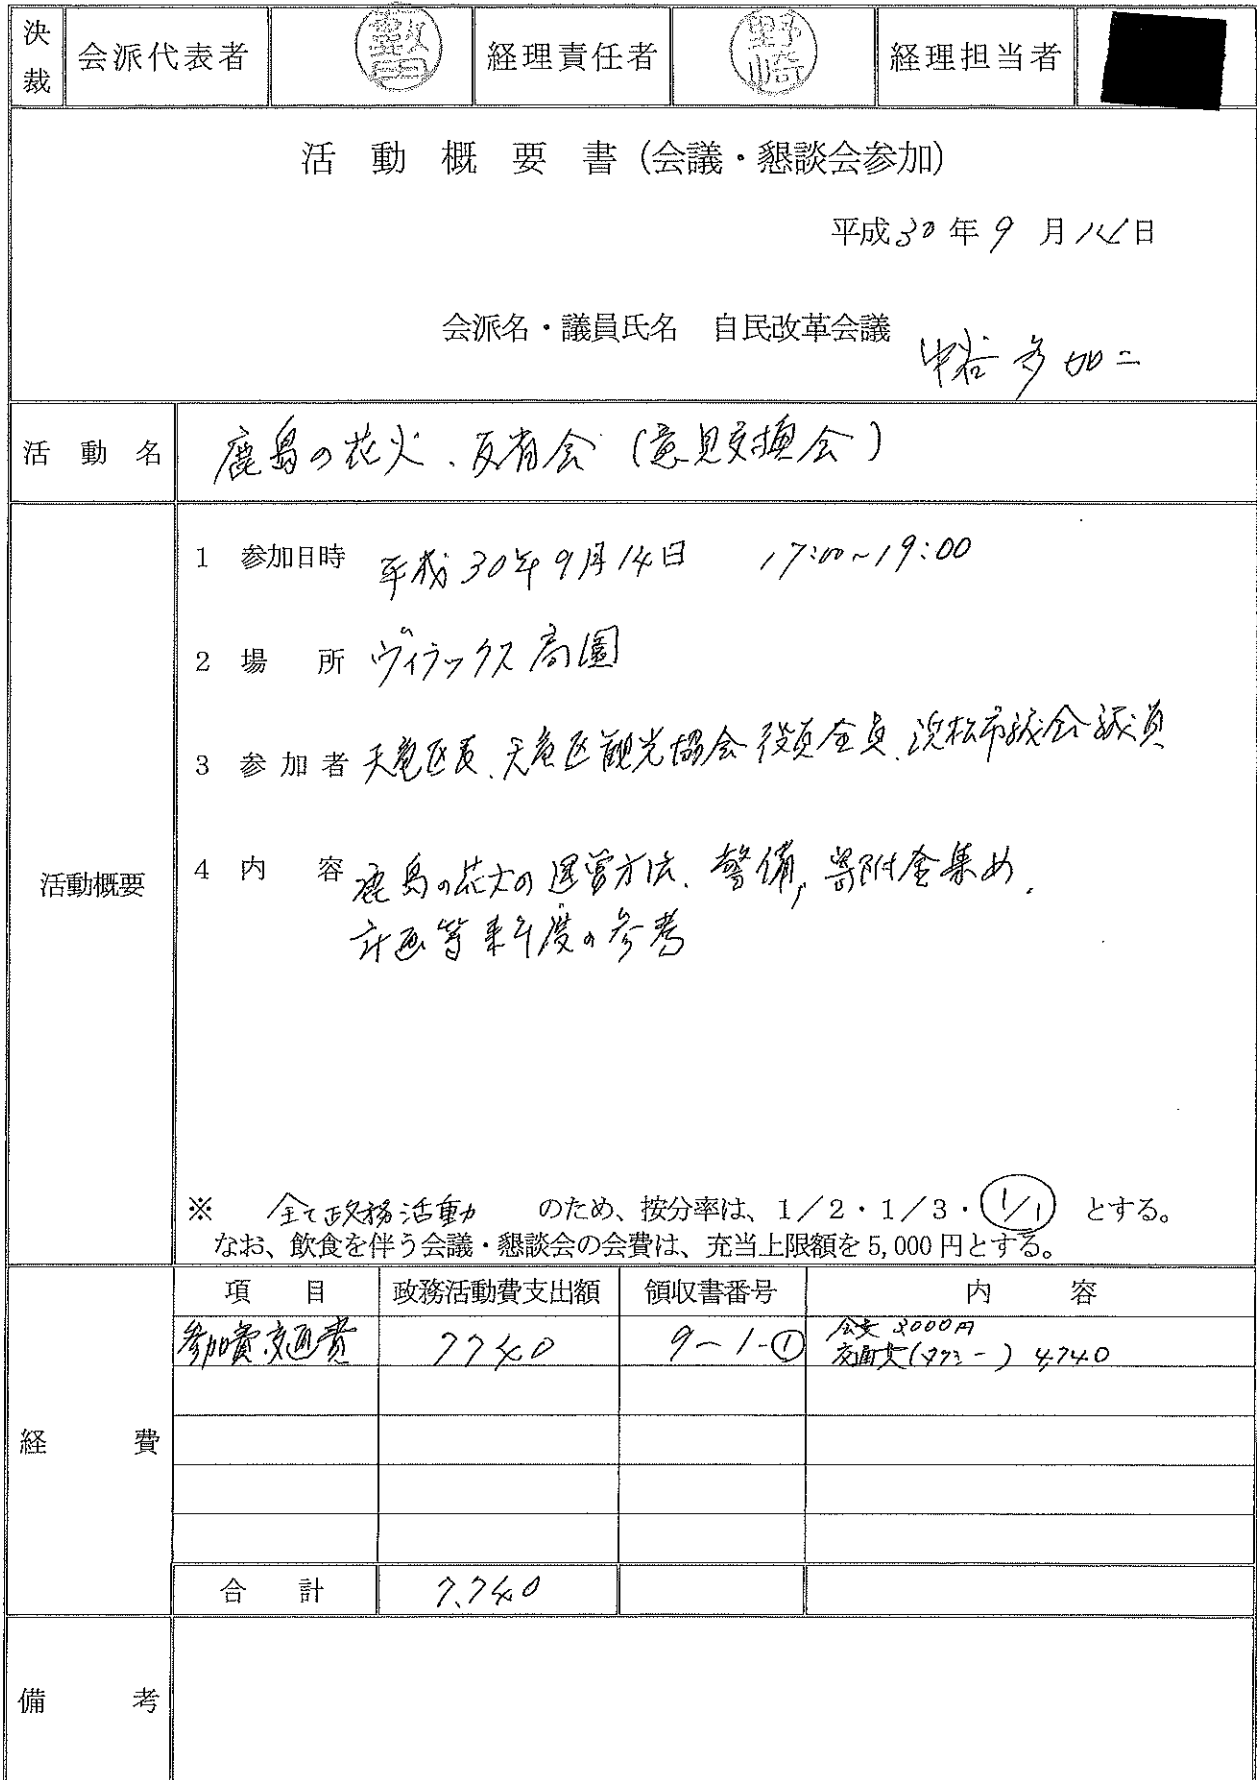 決裁 会派代表者 経理責任者 野崎 経理担当者
活動概要書（会議・懇談会参加）
平成30年9月14日
会派名・議員氏名 自民改革会議
中谷多加二
活動名 鹿島の花火、反省会（意見交換会）
活動概要
1 参加日時 平成30年9月14日 17:00~19:00
2 場所 ヴィラックス高園
3 参加者 天竜区長、天竜区観光協会役員全員、浜松市議会議員
4 内容 鹿島の花火の運営方法、警備、寄附金集め、
計画等来年度の参考
※ 全て政務活動 のため、按分率は、1／2・1／3・1/1 とする。
なお、飲食を伴う会議・懇談会の会費は、充当上限額を5,000円とする。
経費
項目 政務活動費支出額 領収書番号 内容
参加費、交通費 7740 9-1-① 会費 3000円
交通費( ) 4,740
合計 7,740
備考